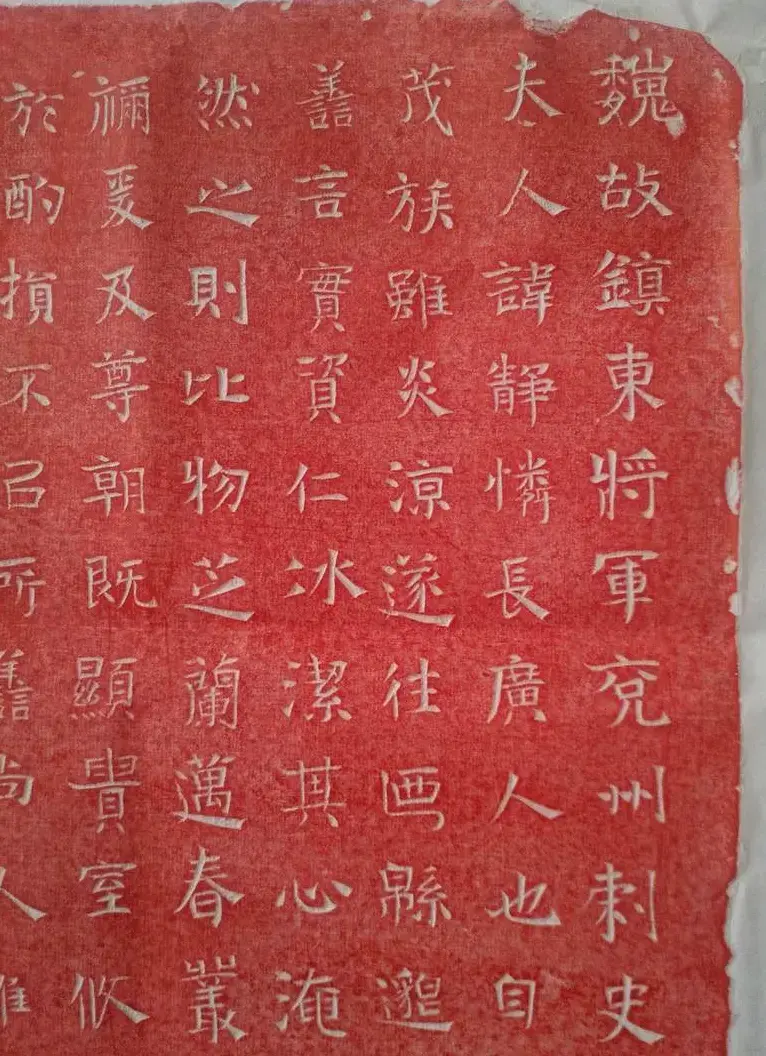 魏故鎮東將軍兗州刺史
夫人諱靜憐長廣人也自
茂族雖炎涼遂往緜邈
譱言實資仁冰潔其心淹
然之則比物芝蘭邁春叢
禰爰及尊朝既顯貴室攸
於酌損不召所譱尚人